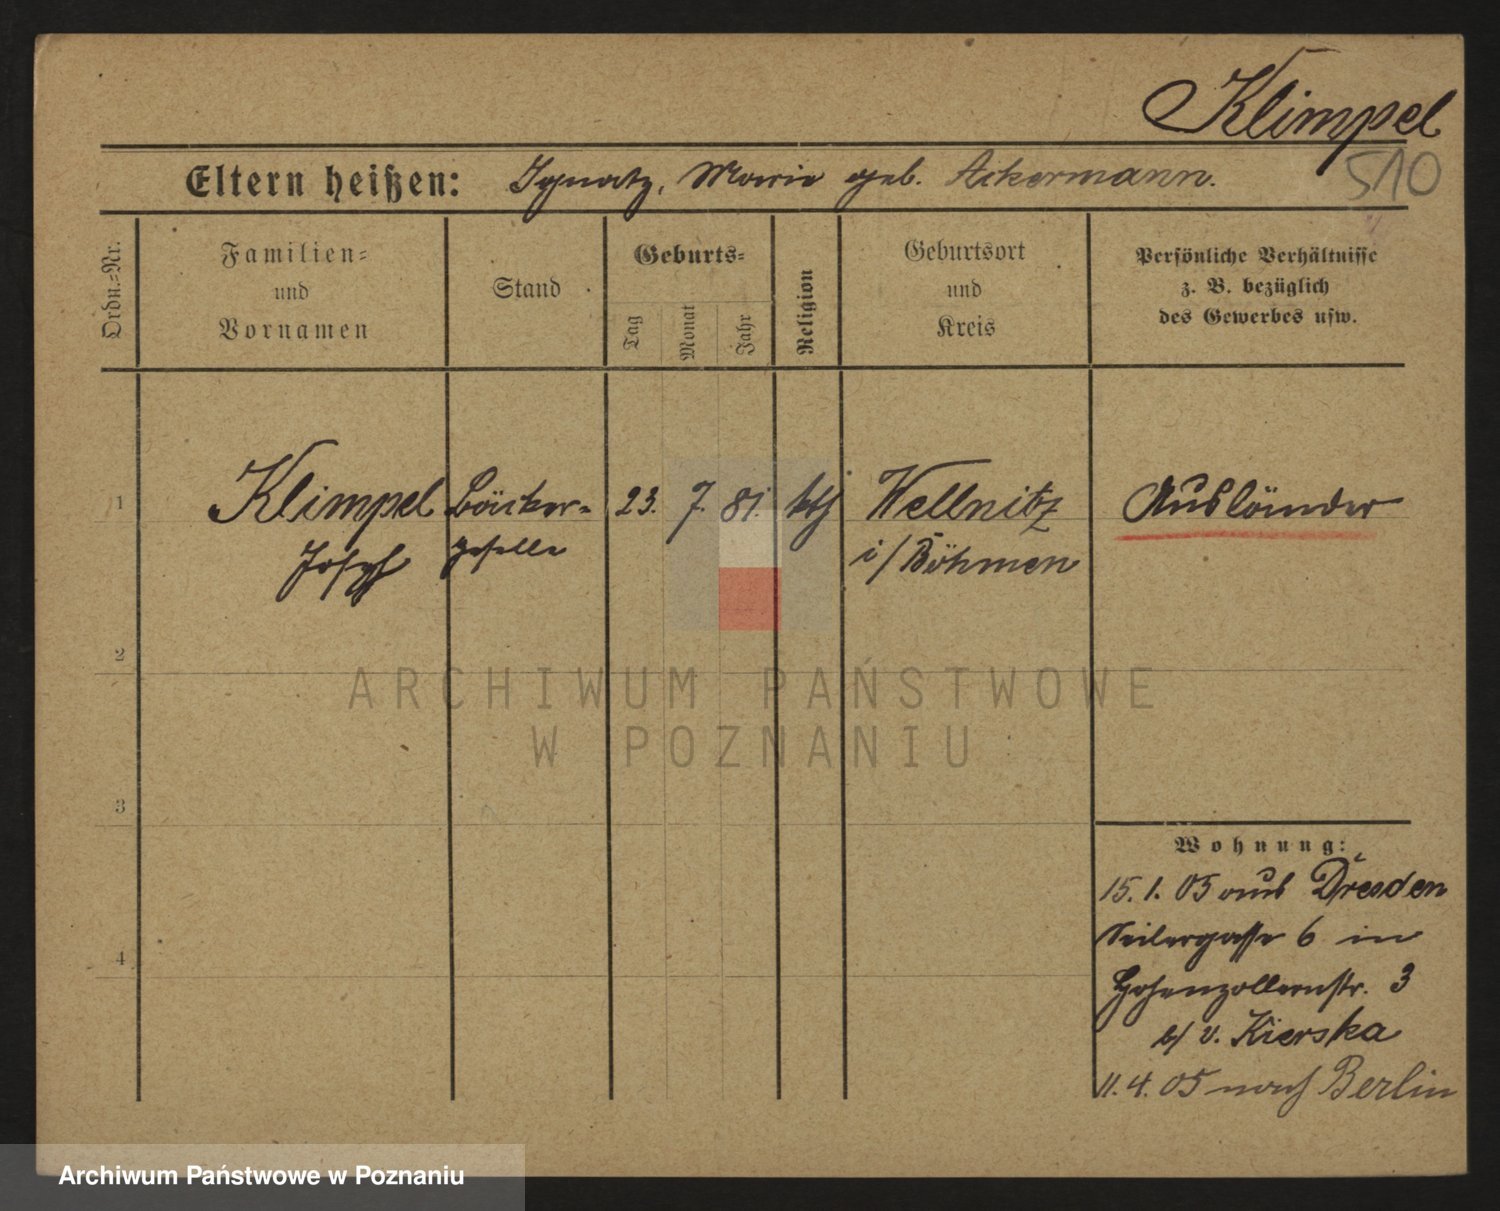 Klimpel
510
Eltern heißen: Ignatz, Marie geb. Ackermann.
Ordn.=Nr.
Familien=
und
Vornamen
Stand
Geburts=
Tag
Monat
Jahr
Religion
Geburtsort
und
Kreis
Persönliche Verhältnisse
z. B. bezüglich
des Gewerbes usw.
1 Klimpel Bäcker= 23. 7. 81. kth Wellnitz Ausländer
Josef geselle i/Böhmen
2
ARCHIWUM PAŃSTWOWE
W POZNANIU
3
Wohnung:
15. 1. 05 aus Dresden
Seilergasse 6 in
4
Hohenzollernstr. 3
b/ v. Kierska
11. 4. 05 nach Berlin
Archiwum Państwowe w Poznaniu